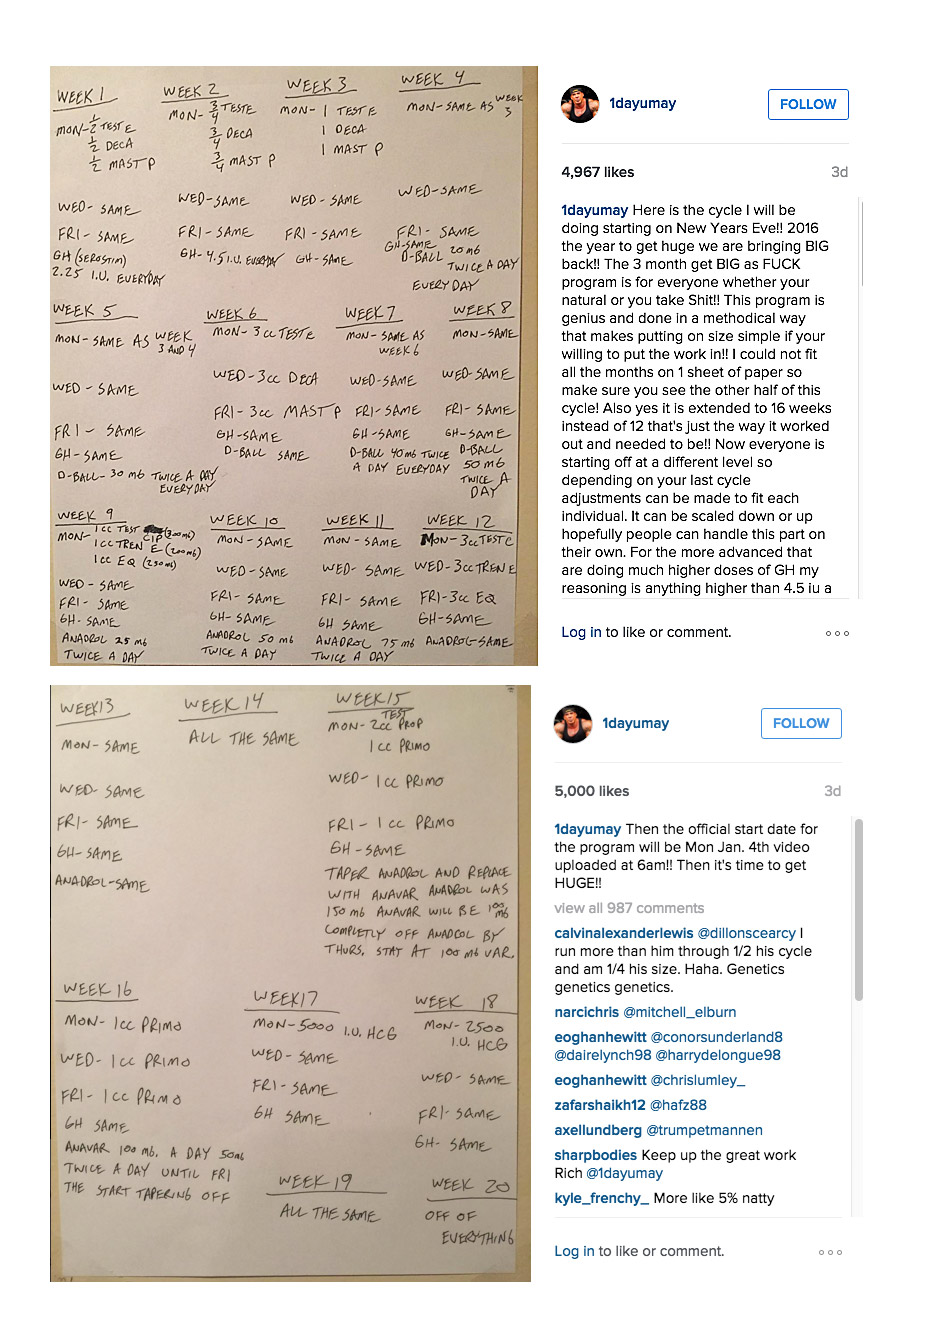 WEEK 1
MON- 1/2 TEST E
1/2 DECA
1/2 MAST P
WED- SAME
FRI- SAME
GH (SEROSTIM)
2.25 I.U. EVERYDAY
WEEK 2
MON- 3/4 TESTE
3/4 DECA
3/4 MAST P
WED-SAME
FRI-SAME
GH-4.5 I.U. EVERYDAY
WEEK 3
MON- 1 TEST E
1 DECA
1 MAST P
WED-SAME
FRI-SAME
GH-SAME
WEEK 4
MON-SAME AS WEEK 3
WED-SAME
FRI-SAME
GH-SAME
D-BALL 20 mG
TWICE A DAY
EVERYDAY
WEEK 5
MON-SAME AS WEEK
3 AND 4
WED-SAME
FRI- SAME
GH-SAME
D-BALL-30 mG TWICE A DAY
EVERYDAY
WEEK 6
MON-3cc TESTE
WED-3cc DECA
FRI-3cc MAST P
GH-SAME
D-BALL SAME
WEEK 7
MON-SAME AS
WEEK 6
WED-SAME
FRI-SAME
GH-SAME
D-BALL 40 mG TWICE
A DAY EVERYDAY
WEEK 8
MON-SAME
WED-SAME
FRI-SAME
GH-SAME
D-BALL
50 mG
TWICE A
DAY
WEEK 9
MON- 1cc TEST CIP (200mG)
1cc TREN E (200mG)
1cc EQ (250mG)
WED-SAME
FRI-SAME
GH-SAME
ANADROL 25 mG
TWICE A DAY
WEEK 10
MON-SAME
WED-SAME
FRI-SAME
GH-SAME
ANADROL 50 mG
TWICE A DAY
WEEK 11
MON-SAME
WED-SAME
FRI-SAME
GH SAME
ANADROL 75 mG
TWICE A DAY
WEEK 12
MON-3cc TEST C
WED-3cc TREN E
FRI-3cc EQ
GH-SAME
ANADROL-SAME
1dayumay
FOLLOW
4,967 likes
3d
1dayumay Here is the cycle I will be
doing starting on New Years Eve!! 2016
the year to get huge we are bringing BIG
back!! The 3 month get BIG as FUCK
program is for everyone whether your
natural or you take Shit!! This program is
genius and done in a methodical way
that makes putting on size simple if your
willing to put the work in!! I could not fit
all the months on 1 sheet of paper so
make sure you see the other half of this
cycle! Also yes it is extended to 16 weeks
instead of 12 that's just the way it worked
out and needed to be!! Now everyone is
starting off at a different level so
depending on your last cycle
adjustments can be made to fit each
individual. It can be scaled down or up
hopefully people can handle this part on
their own. For the more advanced that
are doing much higher doses of GH my
reasoning is anything higher than 4.5 iu a
Log in to like or comment.
WEEK13
MON- SAME
WED- SAME
FRI- SAME
GH-SAME
ANADROL-SAME
WEEK 14
ALL THE SAME
WEEK15
MON-2cc TEST PROP
1cc PRIMO
WED- 1cc PRIMO
FRI- 1cc PRIMO
GH-SAME
TAPER ANADROL AND REPLACE
WITH ANAVAR ANADROL WAS
150 mG ANAVAR WILL BE 100 mG
COMPLETLY OFF ANADROL BY
THURS. STAT AT 100 mG VAR.
WEEK 16
MON- 1cc PRIMO
WED- 1cc PRIMO
FRI- 1cc PRIMO
GH SAME
ANAVAR 100 mG. A DAY 50mG
TWICE A DAY UNTIL FRI
THE START TAPERING OFF
WEEK17
MON-5000 I.U. HCG
WED-SAME
FRI-SAME
GH SAME
WEEK 18
MON-2500
I.U. HCG
WED-SAME
FRI-SAME
GH-SAME
WEEK 19
ALL THE SAME
WEEK 20
OFF OF
EVERYTHING
1dayumay
FOLLOW
5,000 likes
3d
1dayumay Then the official start date for
the program will be Mon Jan. 4th video
uploaded at 6am!! Then it's time to get
HUGE!!
view all 987 comments
calvinalexanderlewis @dillonscearcy I
run more than him through 1/2 his cycle
and am 1/4 his size. Haha. Genetics
genetics genetics.
narcichris @mitchell_elburn
eoghanhewitt @conorsunderland8
@dairelynch98 @harrydelongue98
eoghanhewitt @chrislumley_
zafarshaikh12 @hafz88
axellundberg @trumpetmannen
sharpbodies Keep up the great work
Rich @1dayumay
kyle_frenchy_ More like 5% natty
Log in to like or comment.